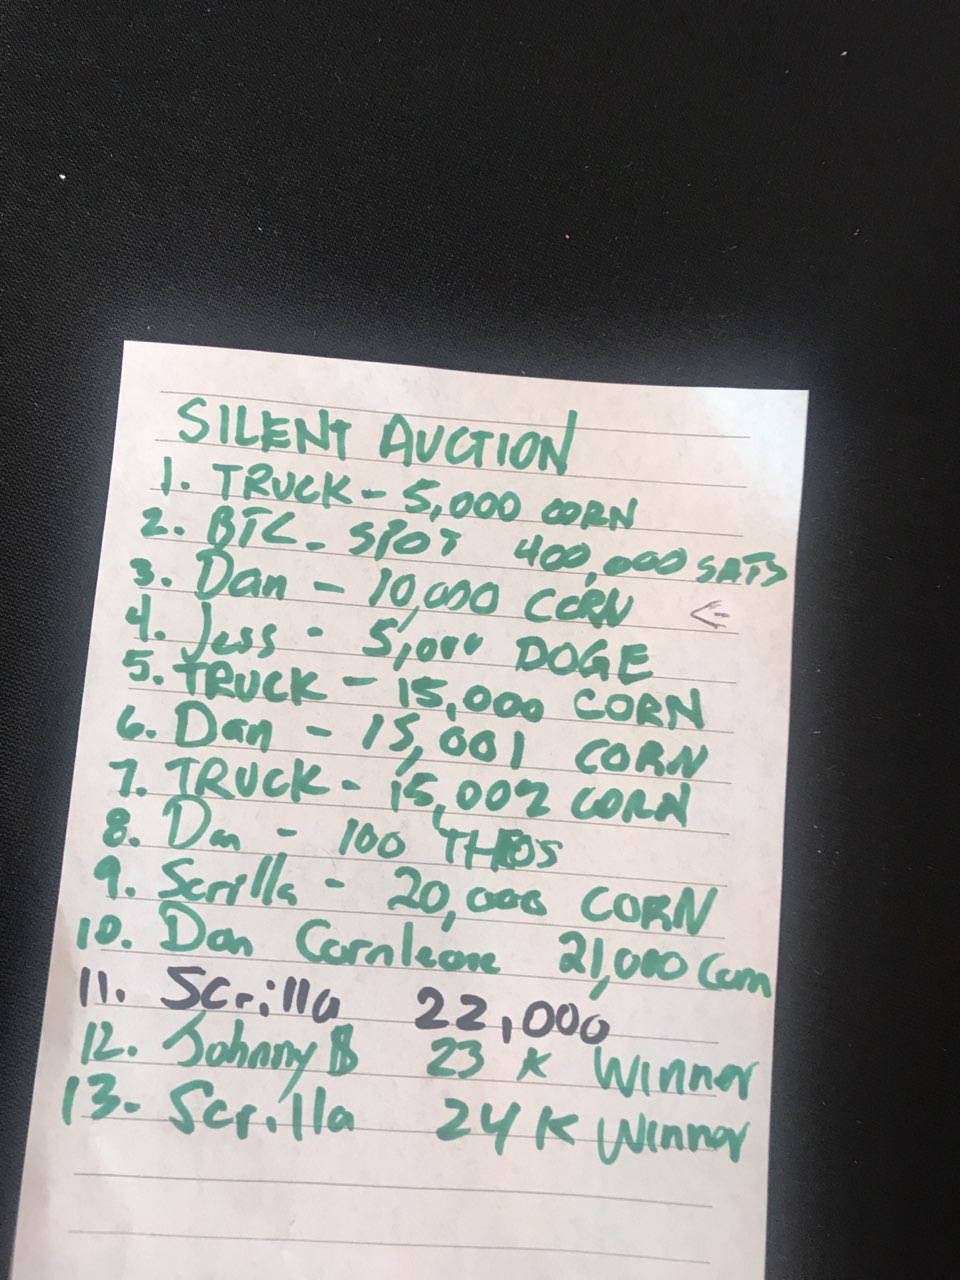 SILENT AUCTION
1. TRUCK - 5,000 CORN
2. BTC - SPOT 400,000 SATS
3. Dan - 10,000 CORN <-
4. Jess - 5,000 DOGE
5. TRUCK - 15,000 CORN
6. Dan - 15,001 CORN
7. TRUCK - 15,002 CORN
8. Dan - 100
9. Scrilla - 20,000 CORN
10. Dan Cornleone 21,000 Corn
11. Scrilla 22,000
12. Johnny B 23 K Winner
13. Scrilla 24 K Winner